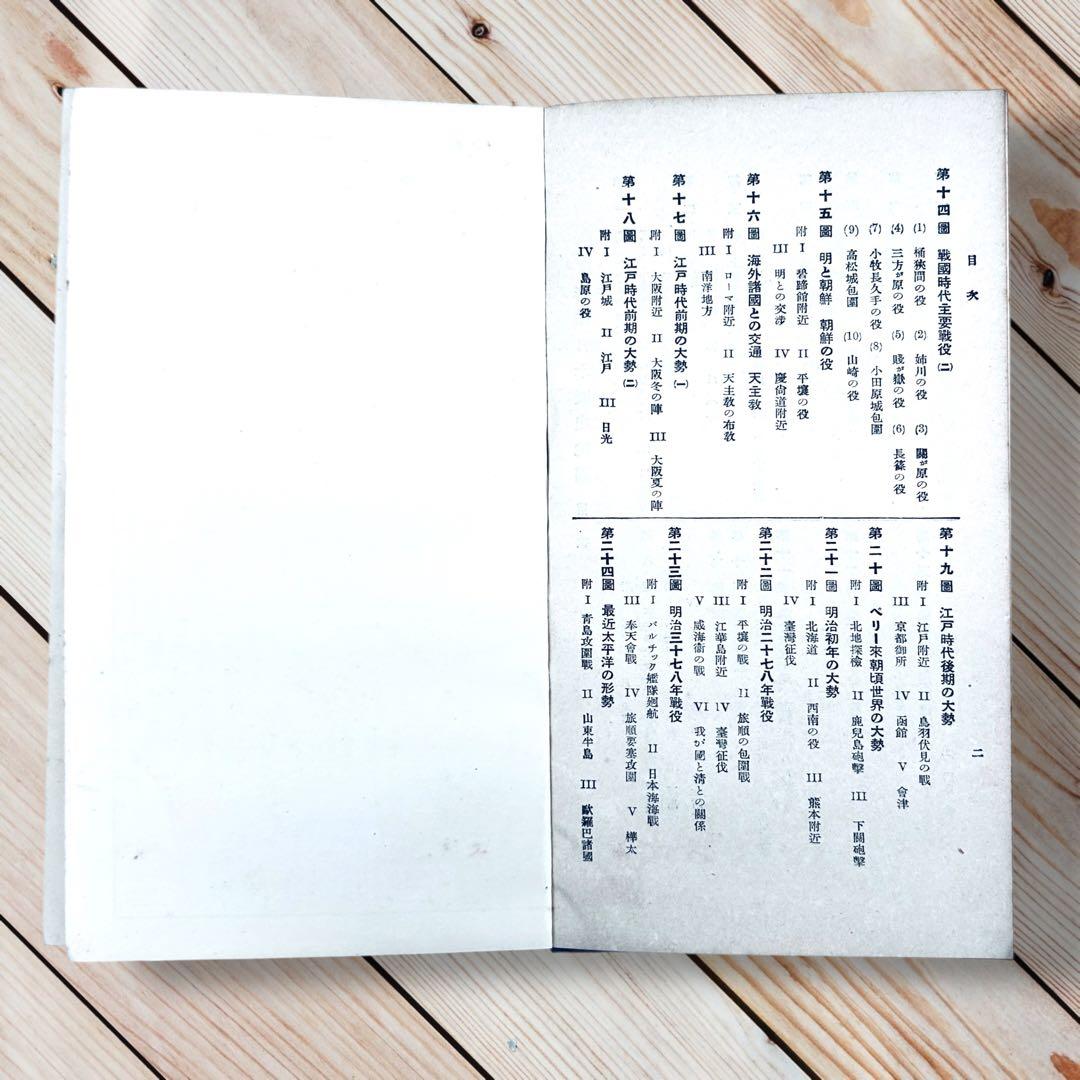 目次
第十四圖 戰國時代主要戰役(二)
(1) 桶狹間の役 (2) 姉川の役 (3) 關が原の役
(4) 三方が原の役 (5) 賤が嶽の役 (6) 長篠の役
(7) 小牧長久手の役 (8) 小田原城包圍
(9) 高松城包圍 (10) 山崎の役
第十五圖 明と朝鮮 朝鮮の役
附 I 碧蹄館附近 II 平壤の役
III 明との交渉 IV 慶尙道附近
第十六圖 海外諸國との交通 天主教
附 I ローマ附近 II 天主教の布教
III 南洋地方
第十七圖 江戸時代前期の大勢(一)
附 I 大阪附近 II 大阪冬の陣 III 大阪夏の陣
第十八圖 江戸時代前期の大勢(二)
附 I 江戸城 II 江戸 III 日光
IV 島原の役
第十九圖 江戸時代後期の大勢
附 I 江戸附近 II 鳥羽伏見の戰
III 京都御所 IV 函館 V 會津
第二十圖 ペリー來朝頃世界の大勢
附 I 北地探檢 II 鹿兒島砲擊 III 下關砲擊
第二十一圖 明治初年の大勢
附 I 北海道 II 西南の役 III 熊本附近
IV 臺灣征伐
第二十二圖 明治二十七八年戰役
附 I 平壤の戰 II 旅順の包圍戰
III 江華島附近 IV 臺灣征伐
V 威海衞の戰 VI 我が國と淸との關係
第二十三圖 明治三十七八年戰役
附 I バルチック艦隊廻航 II 日本海海戰
III 奉天會戰 IV 旅順要塞攻圍 V 樺太
第二十四圖 最近太平洋の形勢
附 I 靑島攻圍戰 II 山東半島 III 歐羅巴諸國
二